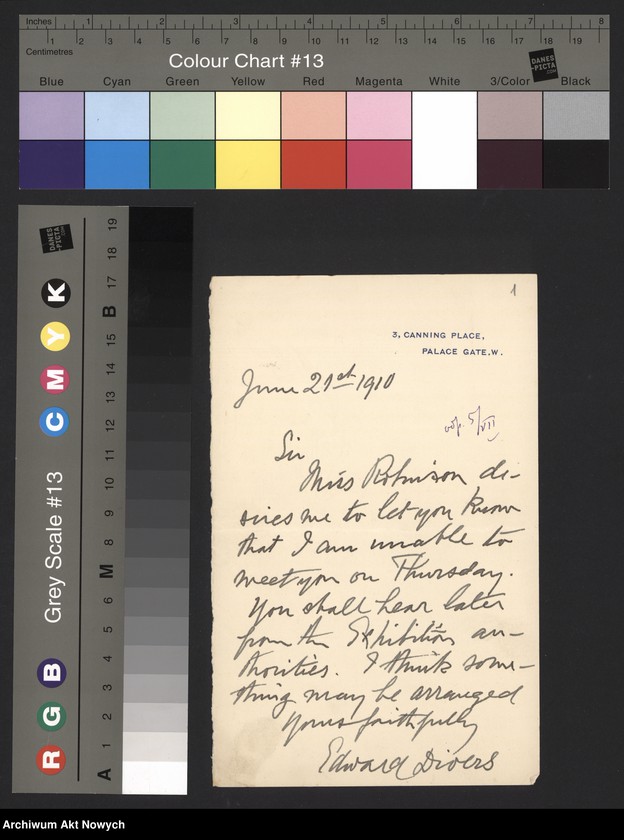 Inches 1 2 3 4 5 6 7 8
Centimetres 1 2 3 4 5 6 7 8 9 10 11 12 13 14 15 16 17 18 19
Colour Chart #13
DANES-PICTA.COM
Blue Cyan Green Yellow Red Magenta White 3/Color Black
Grey Scale #13
DANES-PICTA.COM
R G B C M Y K
A 1 2 3 4 5 6 M 8 9 10 11 12 13 14 15 B 17 18 19
1
3, CANNING PLACE,
PALACE GATE, W.
June 21st 1910
odp. 5/VII
Sir
Miss Robinson de-
sires me to let you know
that I am unable to
meet you on Thursday.
You shall hear later
from the Exhibition au-
thorities. I think some-
thing may be arranged
Yours faithfully
Edward Divers
Archiwum Akt Nowych